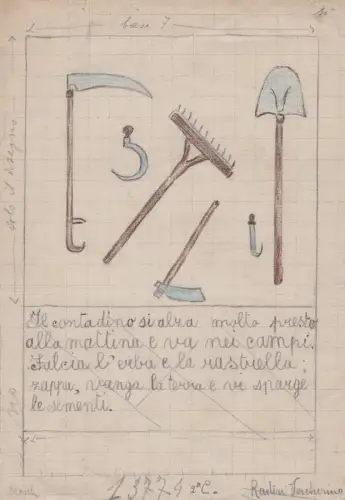 base 7
Il contadino si alza molto presto
alla mattina e va nei campi.
Falcia l'erba e la rastrella;
zappa, vanga la terra e vi sparge
le sementi.
13774 2ª C.